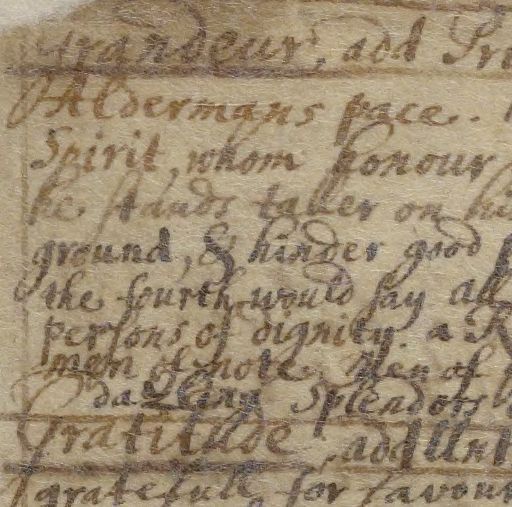 Grandeur, add Pri
Aldermans pace.
Spirit, whom honour
he stands taller on hi
ground, & hinder good
the fourth would say all
persons of dignity. a R
men of note. Men of
dazling Splendors
Gratitude, add Unt
gratefull for favour